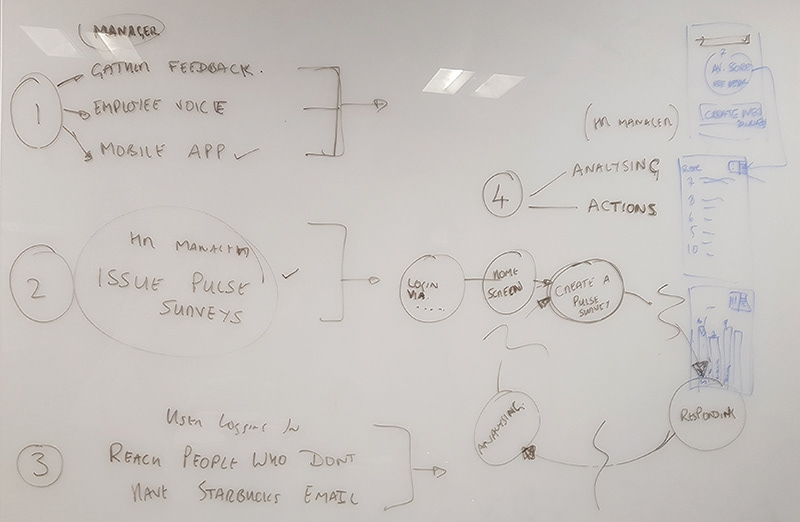 MANAGER
1
GATHER FEEDBACK.
EMPLOYEE VOICE
MOBILE APP
2
HR MANAGER
ISSUE PULSE
SURVEYS
3
USER LOGGING IN
REACH PEOPLE WHO DONT
HAVE STARBUCKS EMAIL
(HR MANAGER)
4
ANALYSING
ACTIONS
LOGIN
VIA
.....
HOME
SCREEN
CREATE A
PULSE
SURVEY
RESPONDING
ANALYSING.
7
CREATE
7
8
6
5
10